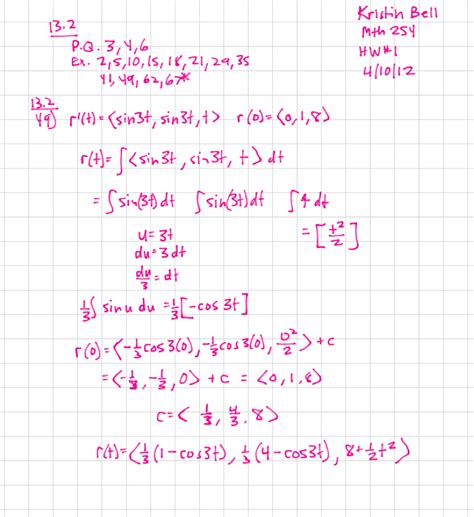 13.2
P.Q. 3, 4, 6
Ex. 2, 5, 10, 15, 18, 21, 29, 35
41, 49, 62, 67*
Kristin Bell
Mth 254
HW#1
4/10/12
13.2
49) r'(t) = ⟨sin3t, sin3t, t⟩ r(0) = ⟨0, 1, 8⟩
r(t) = ∫⟨sin3t, sin3t, t⟩ dt
= ∫sin(3t) dt ∫sin(3t) dt ∫t dt
u = 3t
du = 3 dt
du/3 = dt
= [t²/2]
1/3 ∫ sin u du = 1/3 [-cos 3t]
r(0) = ⟨-1/3 cos 3(0), -1/3 cos 3(0), 0²/2⟩ + c
= ⟨-1/3, -1/3, 0⟩ + c = ⟨0, 1, 8⟩
c = ⟨1/3, 4/3, 8⟩
r(t) = ⟨1/3 (1 - cos3t), 1/3 (4 - cos3t), 8 + 1/2 t²⟩